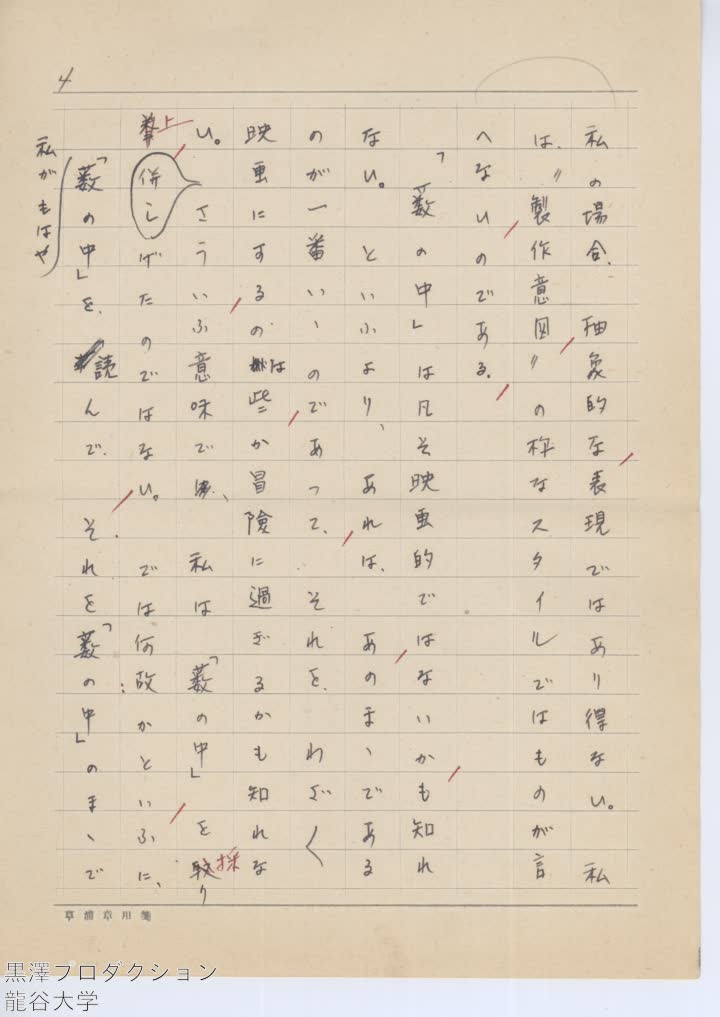 4
私の場合、抽象的な表現ではあり得ない。私
は、〃製作意図〃の枠なスタイルではものが言
へないのである。
「藪の中」は凡そ映画的ではないかも知れ
ない。といふより、あれは、あのまゝである
のが一番いゝのであって、それを、わざ〱
映画にするのは些か冒険に過ぎるかも知れな
い。さういふ意味で、私は「藪の中」を採り
上げたのではない。では何故かといふに、
併し
私がもはや
「藪の中」を、読んで、それを「藪の中」のまゝで
草浦京川用箋
黒澤プロダクション
龍谷大学